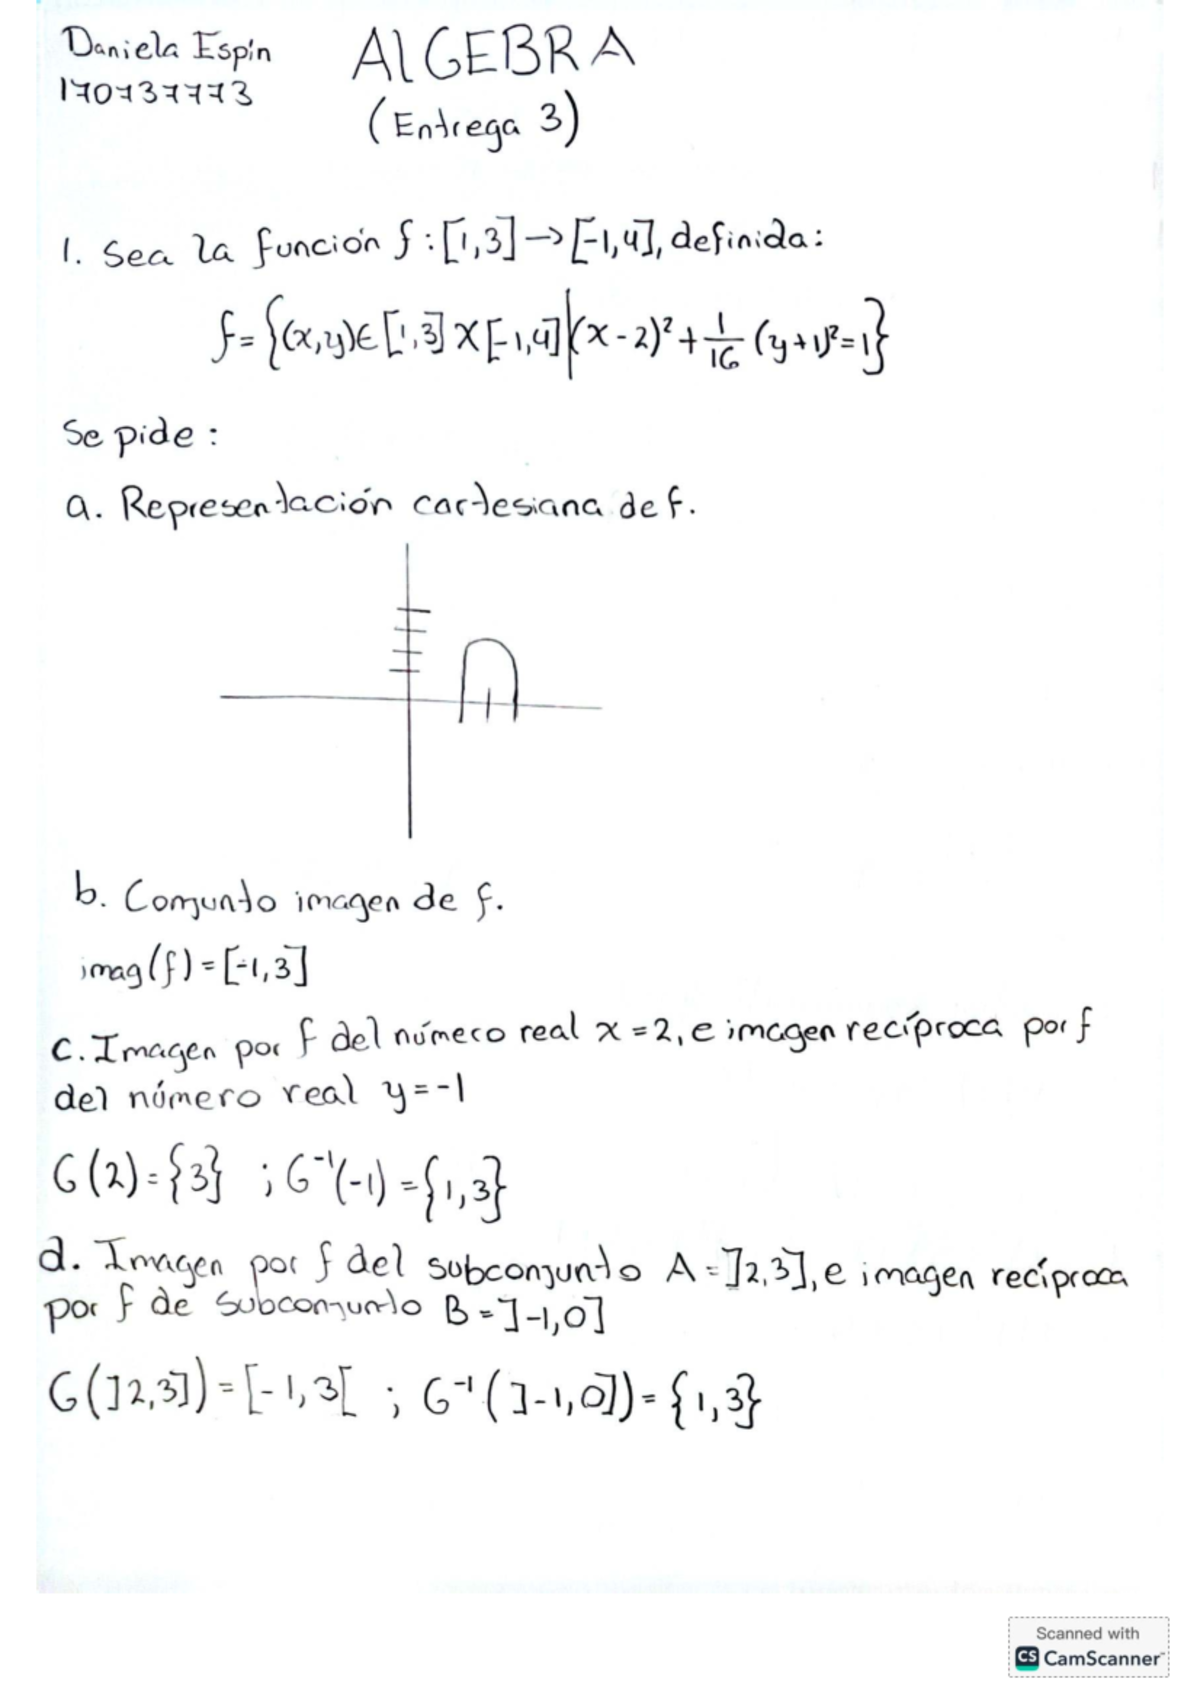 Daniela Espín
170737773
ALGEBRA
(Entrega 3)
1. Sea la función f:[1,3]→[-1,4], definida:
f={(x,y)∈[1,3]X[-1,4]|(x-2)²+1/16(y+1)²=1}
Se pide:
a. Representación cartesiana de f.
b. Conjunto imagen de f.
imag(f)=[-1,3]
c. Imagen por f del número real x=2, e imagen recíproca por f
del número real y=-1
G(2)={3} ; G⁻¹(-1)={1,3}
d. Imagen por f del subconjunto A=]2,3], e imagen recíproca
por f de subconjunto B=]-1,0]
G(]2,3])=[-1,3[ ; G⁻¹(]-1,0])={1,3}
Scanned with
CS CamScanner